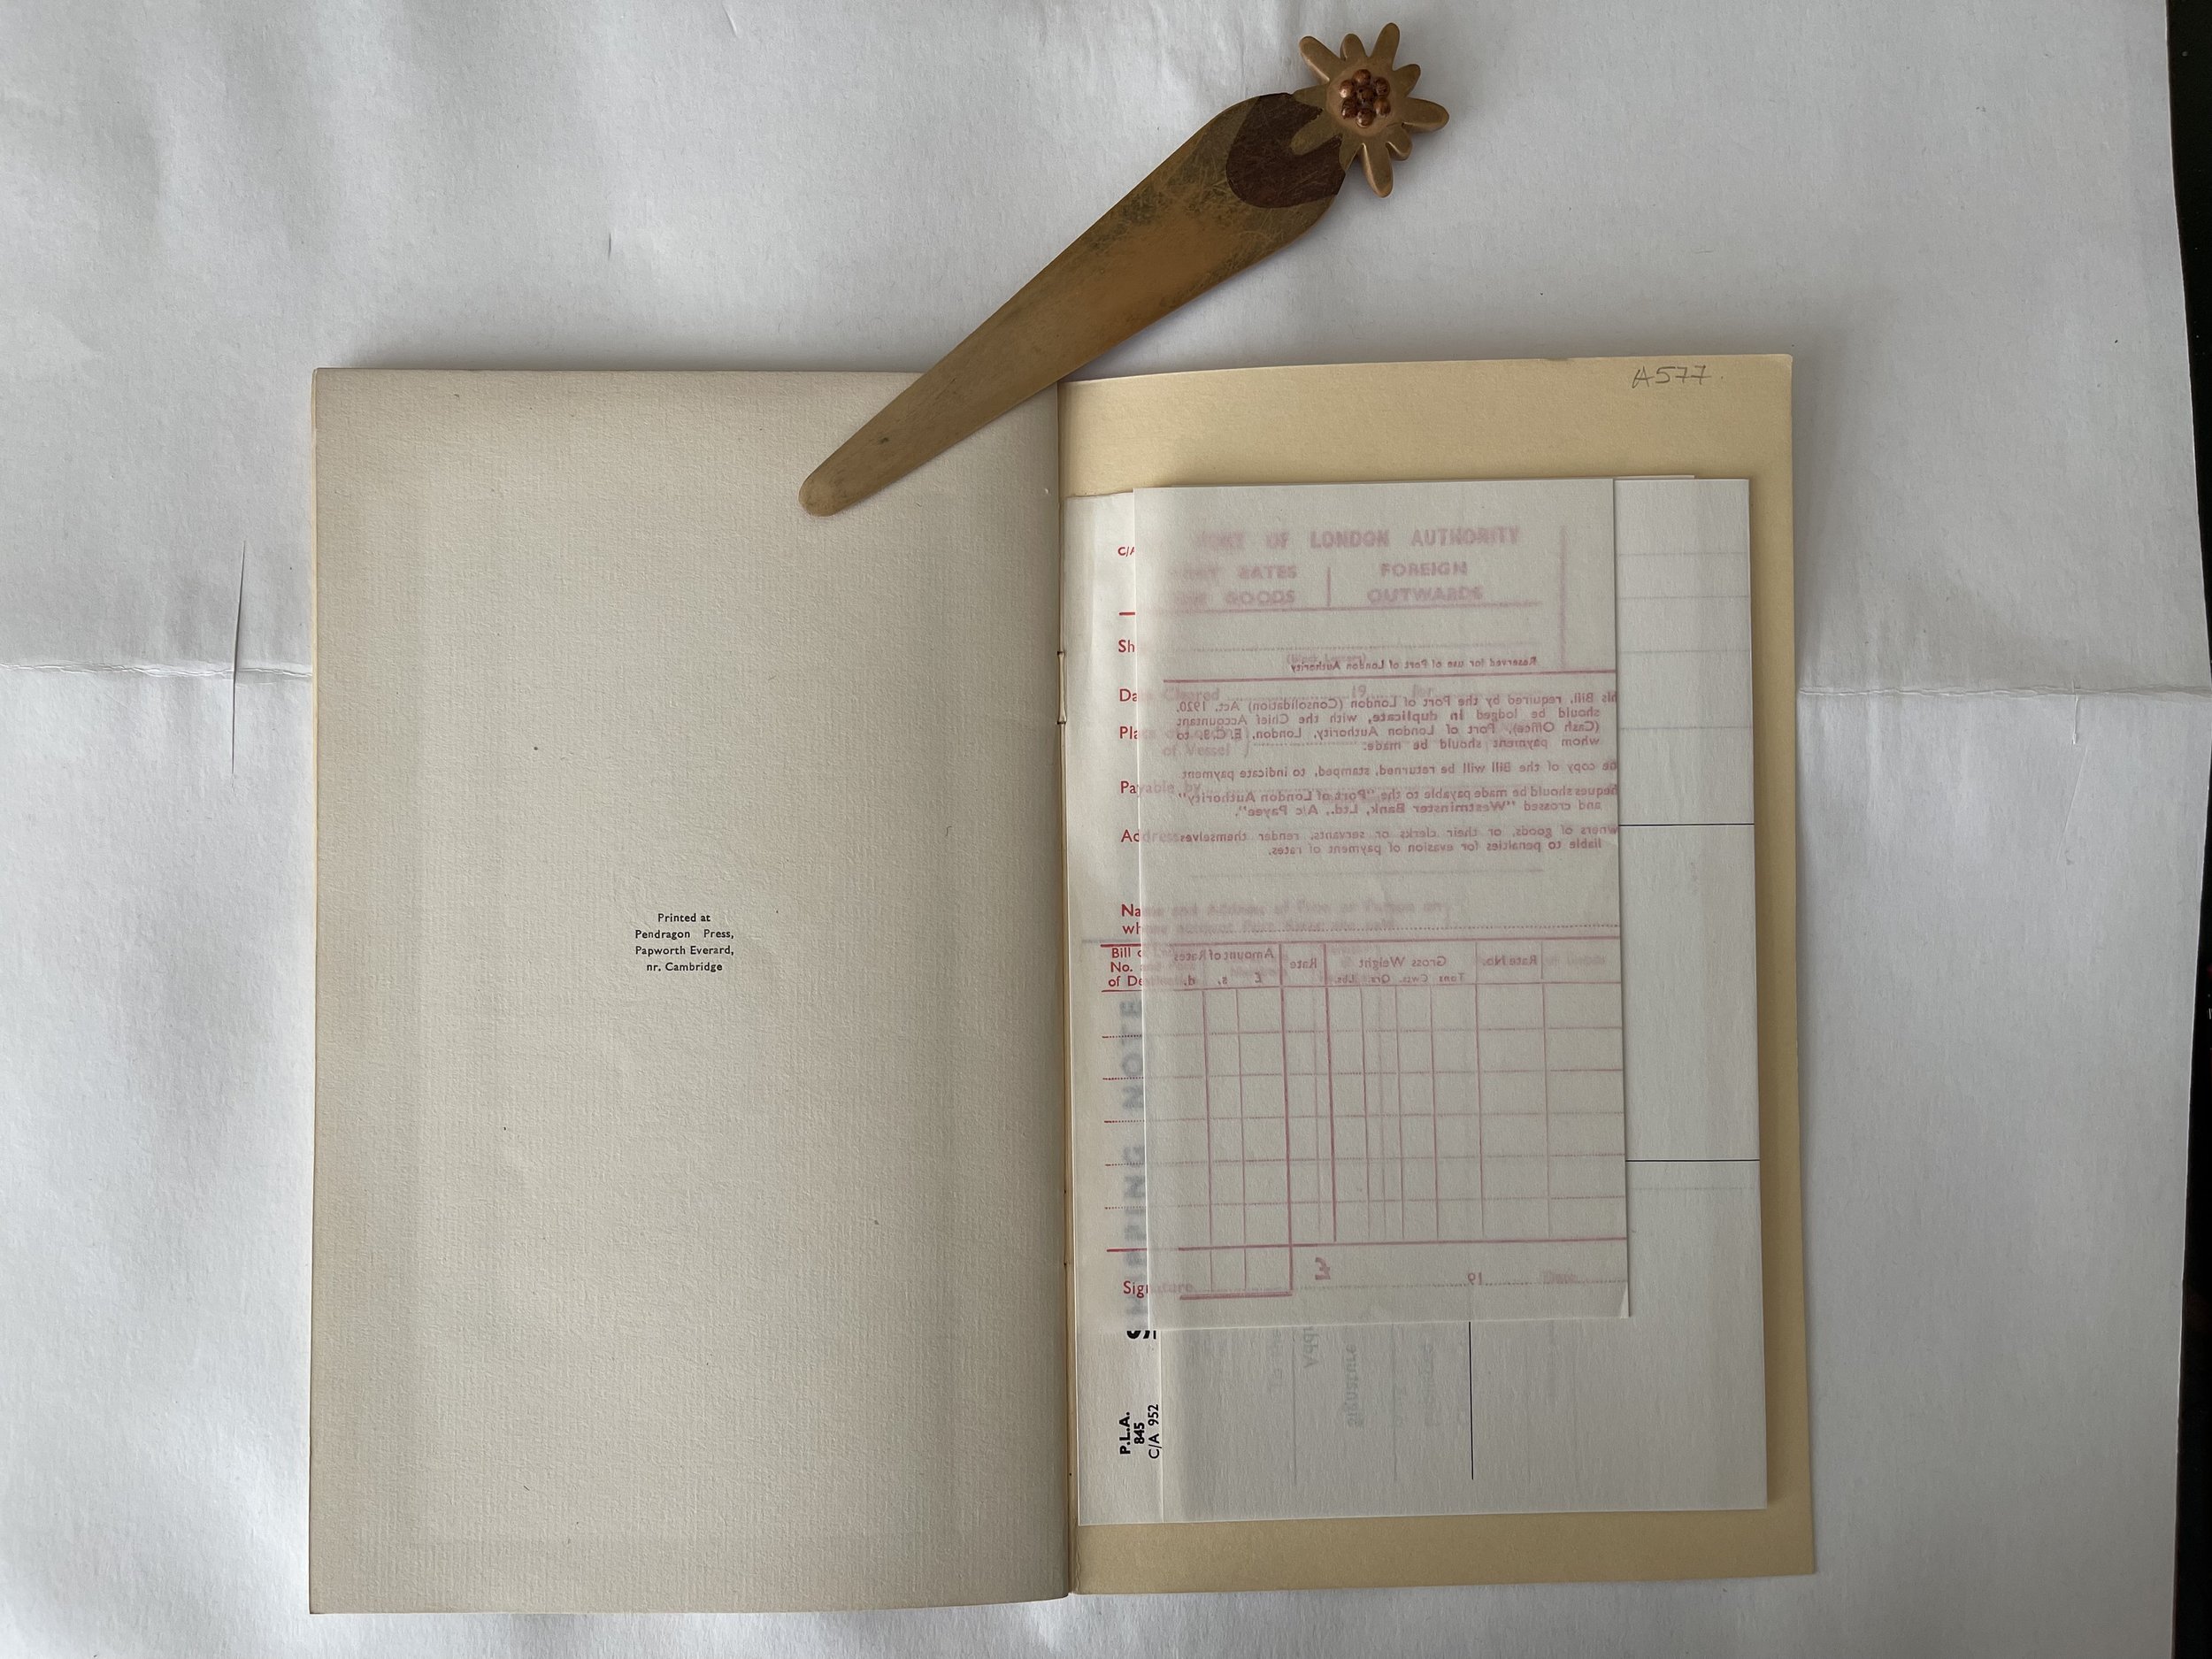 Printed at
Pendragon Press,
Papworth Everard,
nr. Cambridge
A577.
C/A
PORT OF LONDON AUTHORITY
PORT RATES
FOREIGN
ON GOODS
OUTWARDS
Sh
Reserved for use of Port of London Authority
Date Cleared 19 for
his Bill, required by the Port of London (Consolidation) Act, 1920,
should be lodged in duplicate, with the Chief Accountant
(Cash Office), Port of London Authority, London, E.C.3, to
whom payment should be made.
Pla
of Vessel
ne copy of the Bill will be returned, stamped, to indicate payment
Payable by
heques should be made payable to the "Port of London Authority"
and crossed "Westminster Bank, Ltd., A/c Payee".
Address
wners of goods, or their clerks or servants, render themselves
liable to penalties for evasion of payment of rates.
Name and Address of Firm or Person on
whose account Port Rates are paid
Bill of
No.
of De
Rate No.
Gross Weight
Tons Cwts. Qrs. Lbs.
Rate
Amount of Rates
£ s. d.
Signature
£
Date 19
SHIPPING NOTE
Signature
P.L.A.
845
C/A 952